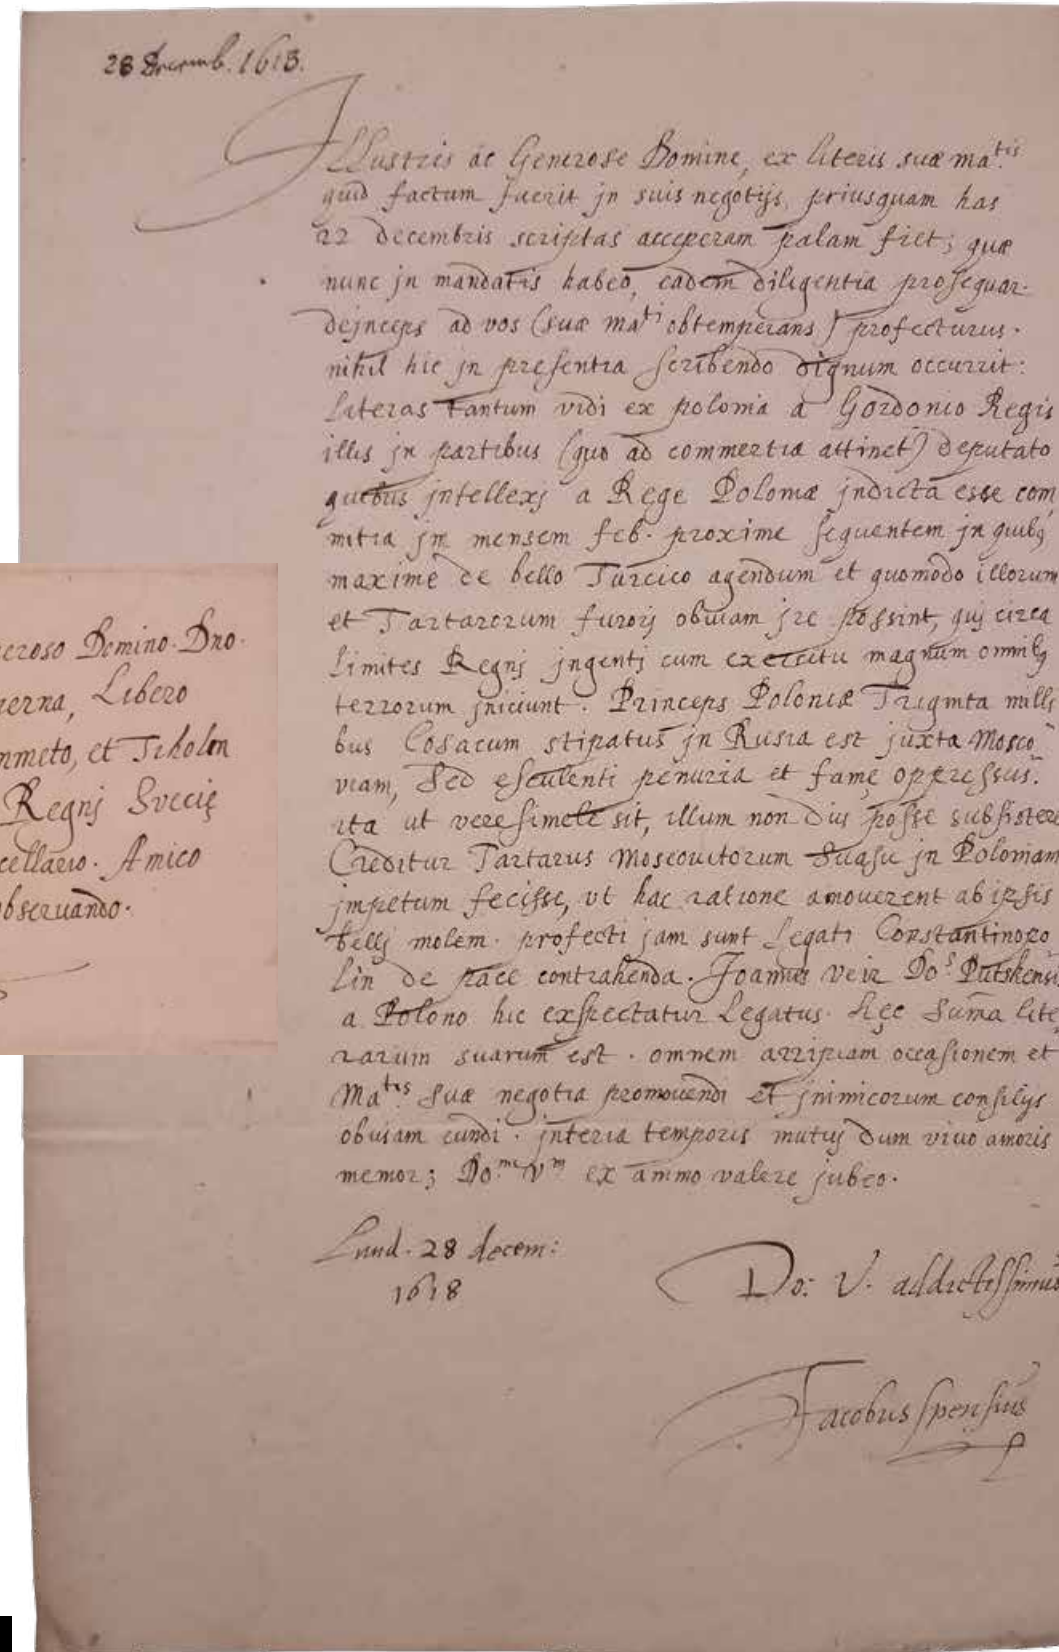 28 Decemb. 1618.
Illustris ac Generose Domine, ex literis suæ ma.tis
quid factum fuerit jn suis negotijs, priusquam has
22 decembris scriptas acceperam palam fiet; quæ
nunc jn mandatis habeo, eadem diligentia prosequar.
dejnceps ad vos (suæ ma.ti obtemperans) profecturus.
nihil hic jn presentia scribendo dignum occurrit:
Lateras tantum vidi ex polonia a Gordonio Regis
illis jn partibus (quo ad commertia attinet) deputato
quibus jntellexj a Rege Poloniæ jndicta esse com
mitia jn mensem feb. proxime sequentem jn quibq
maxime de bello Turcico agendum et quomodo illorum
et Tartarorum furorj obuiam jre possint, quj circa
Limites Regnj jngentj cum exercitu magnum omnibq
terrorum jniciunt. Princeps Poloniæ Triginta milli
bus Cosacum stipatus jn Rusia est juxta Mosco
viam, Sed esculenti penuria et famę oppressus.
ita ut veresimele sit, illum non diu posse subsistere
Creditur Tartarus Moscouitorum suasu jn Poloniam
jmpetum fecisse, vt hac ratione amouerent ab ipsis
bellj molem. profecti jam sunt Legati Constantinopo
lin de pace contrahenda. Joannes veir Do.s Putskensis
a Polono hic exspectatur Legatus. hęc Suma lite
rarum suarum est. omnem arripiam occasionem et
Ma.tis suæ negotia promouendi et jnimicorum consilijs
obuiam eundi. jnteria temporis mutuj dum viuo amoris
memor; Do.nem Vm ex animo valere jubeo.
Lund. 28 decem:
1618
Do: V. addictissimus
Jacobus Spensius
eroso Domino. Dno.
erna, Libero
nmeto, et Tiholen
Regnj Svecię
cellario. Amico
bseruando.